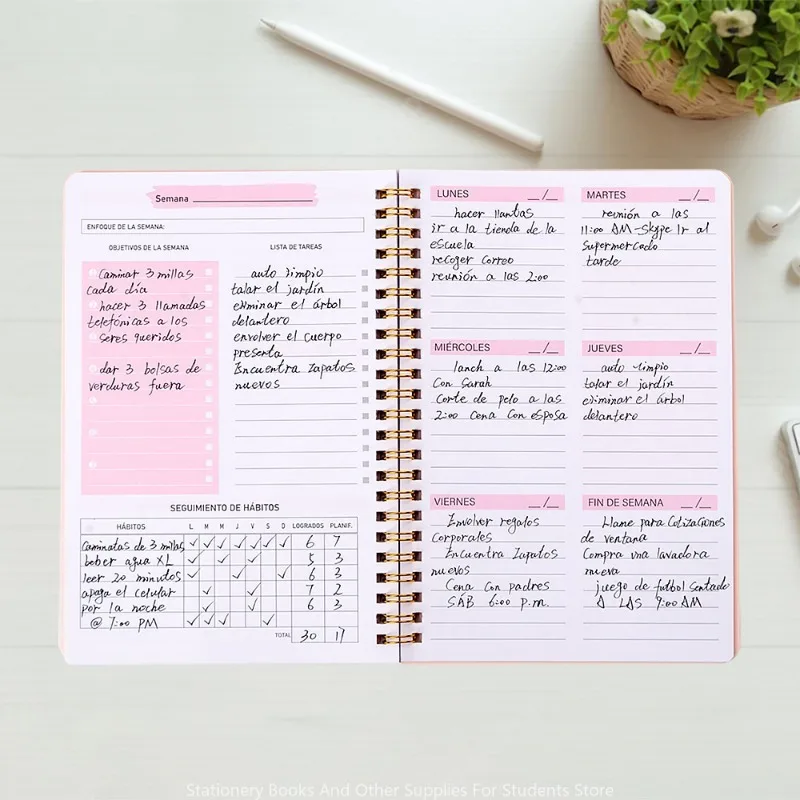 Semana
ENFOQUE DE LA SEMANA:
OBJETIVOS DE LA SEMANA
Caminar 3 millas
cada día
hacer 3 llamadas
telefónicas a los
seres queridos
dar 3 bolsas de
verduras fuera
LISTA DE TAREAS
auto limpio
talar el jardín
eliminar el árbol
delantero
envolver el cuerpo
presenta
Encuentra Zapatos
nuevos
SEGUIMIENTO DE HÁBITOS
HÁBITOS L M M J V S D LOGRADOS PLANIF.
Caminatas de 3 millas ✓ ✓ ✓ ✓ ✓ ✓ ✓ 6 7
beber agua XL ✓ ✓ ✓ 5 3
leer 20 minutos ✓ ✓ ✓ 6 3
apaga el celular ✓ ✓ 7 2
por la noche ✓ ✓ 6 3
@ 7:00 PM ✓ ✓ ✓ ✓
TOTAL 30 17
LUNES _/_
hacer llantas
ir a la tienda de la
escuela
recoger correo
reunión a las 2:00
MARTES _/_
reunión a las
11:00 AM-Skype Ir al
Supermercado
tarde
MIÉRCOLES _/_
lanch a las 12:00
Con Sarah
Corte de pelo a las
2:00 Cena Con esposa
JUEVES _/_
auto limpio
talar el jardín
eliminar el árbol
delantero
VIERNES _/_
Envolver regalos
Corporales
Encuentra Zapatos
nuevos
Cena Con padres
SÁB 6:00 p.m.
FIN DE SEMANA _/_
Llame para Cotizaciones
de ventana
Compra una lavadora
nueva
juego de futbol Sentado
A LAS 9:00 AM
Stationery Books And Other Supplies For Students Store